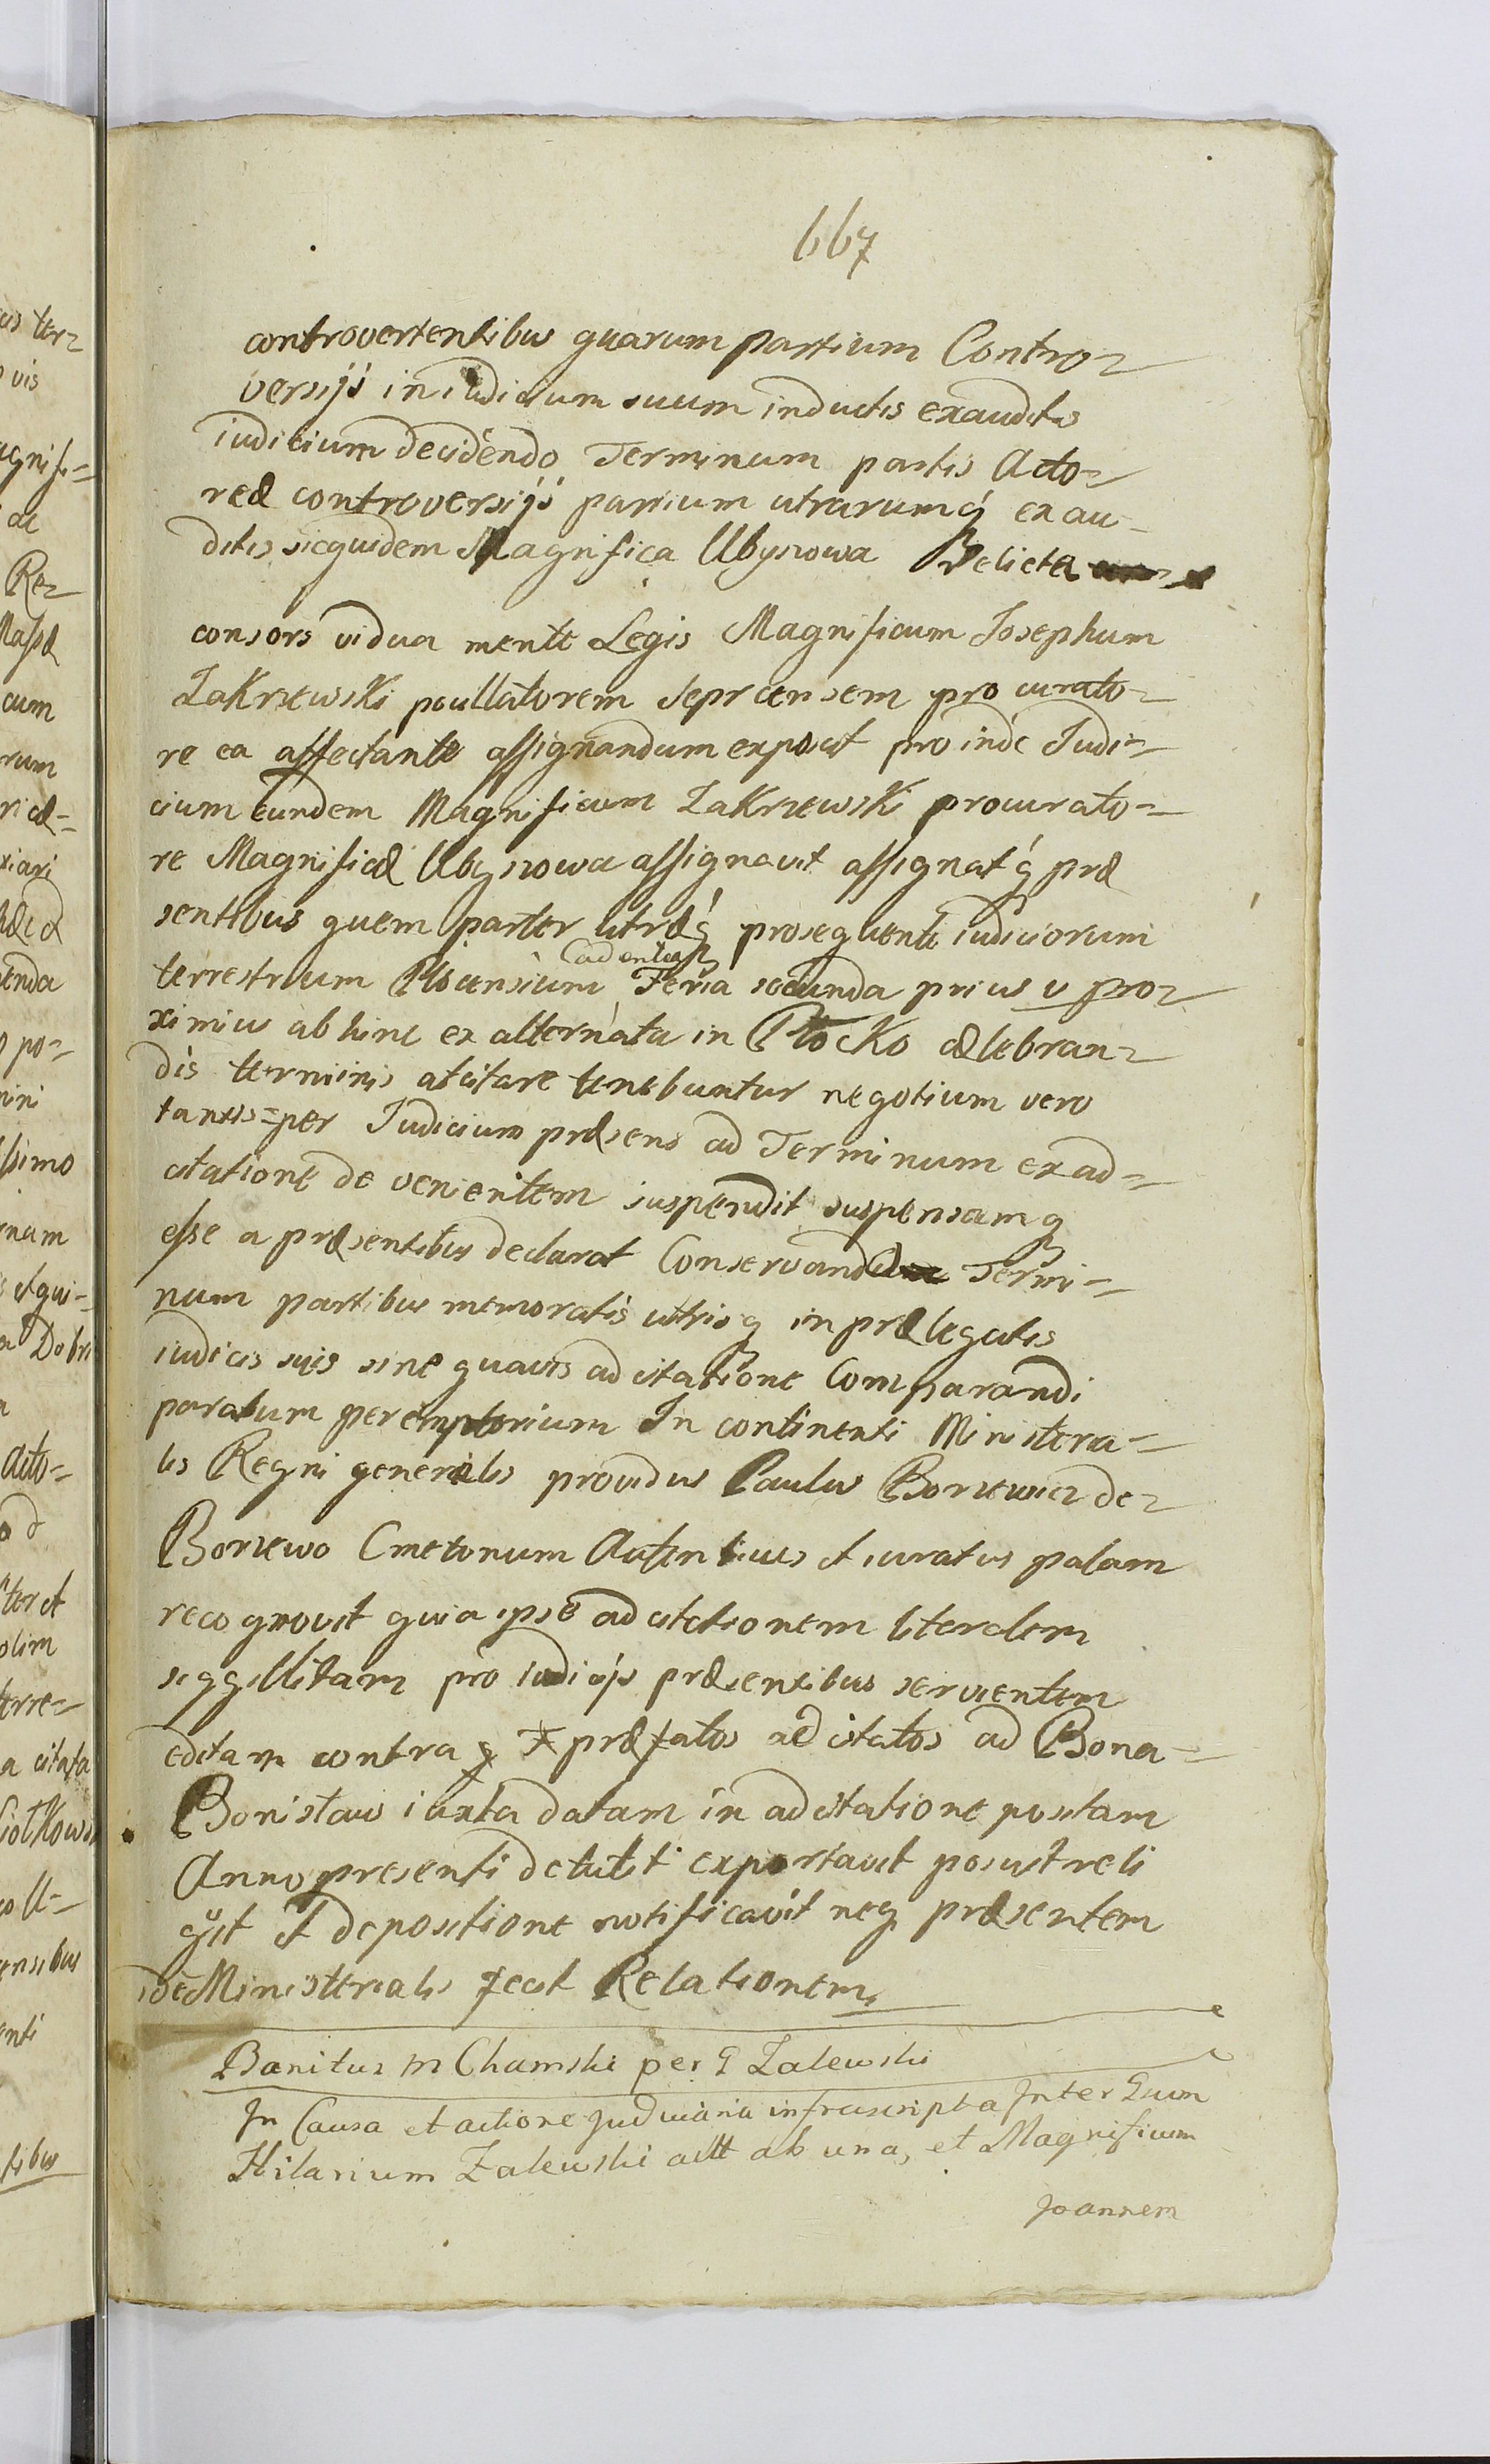 667
controvertentibus quarum partium Contro=
versijs in iudicium suum inductis exauditis
iudicium decidendo Terminum partis Acto=
reæ controversijs partium utrarumq exau=
ditis siequidem Magnifica Ubyszowa Relicta
consors vidua mente Legis Magnificum Josephum
Zakrzewski pocillatorem Seprcensem pro curato=
re ea affectante assignandum exposcit pro inde Judi=
cium eundem Magnificum Zakrzewski procurato=
re Magnificæ Ubyszowa assignavit assignatq præ
sentibus quem parter utræq prosequenti iudiciorum
cadentiæ
terrestrium Plocensium Feria secunda prius v pro=
ximius ab hinc ex alternata in Płocko cælebran=
dis terminis atcitare tenebuntur negotium vero
tantis=per Judicium præsens ad Terminum ex ad=
citatione de venientem suspendit suspensamq
esse a præsentibus declarat Conservando Termi=
num partibus memoratis utrisq in prælegatis
iudicis suis sine quavis ad citatione Comparandi
paratum peremptorium In continenti Ministeria=
lis Regni generalis providus Paulus Borzewicz de=
Borzewo Cmetonum Autenticus et iuratus palam
recognovit quia ipse ad citationem literalem
siggillitam pro iudicijs præsentibus servientem
editam contra q præfatos ad citatos ad Bona=
Bonisław iuxta datam in ad citatione positam
Anno presenti detulit exportavit posuit reli
qit et depositione notificavit neq præsentem
idē Ministerialis fecit Relationem
Banitus M Chamski per G Zalewski
In Causa et actione Judiciaria infrascripta Inter Gum
Hilarium Zalewski act ab una, et Magnificum
Joannem